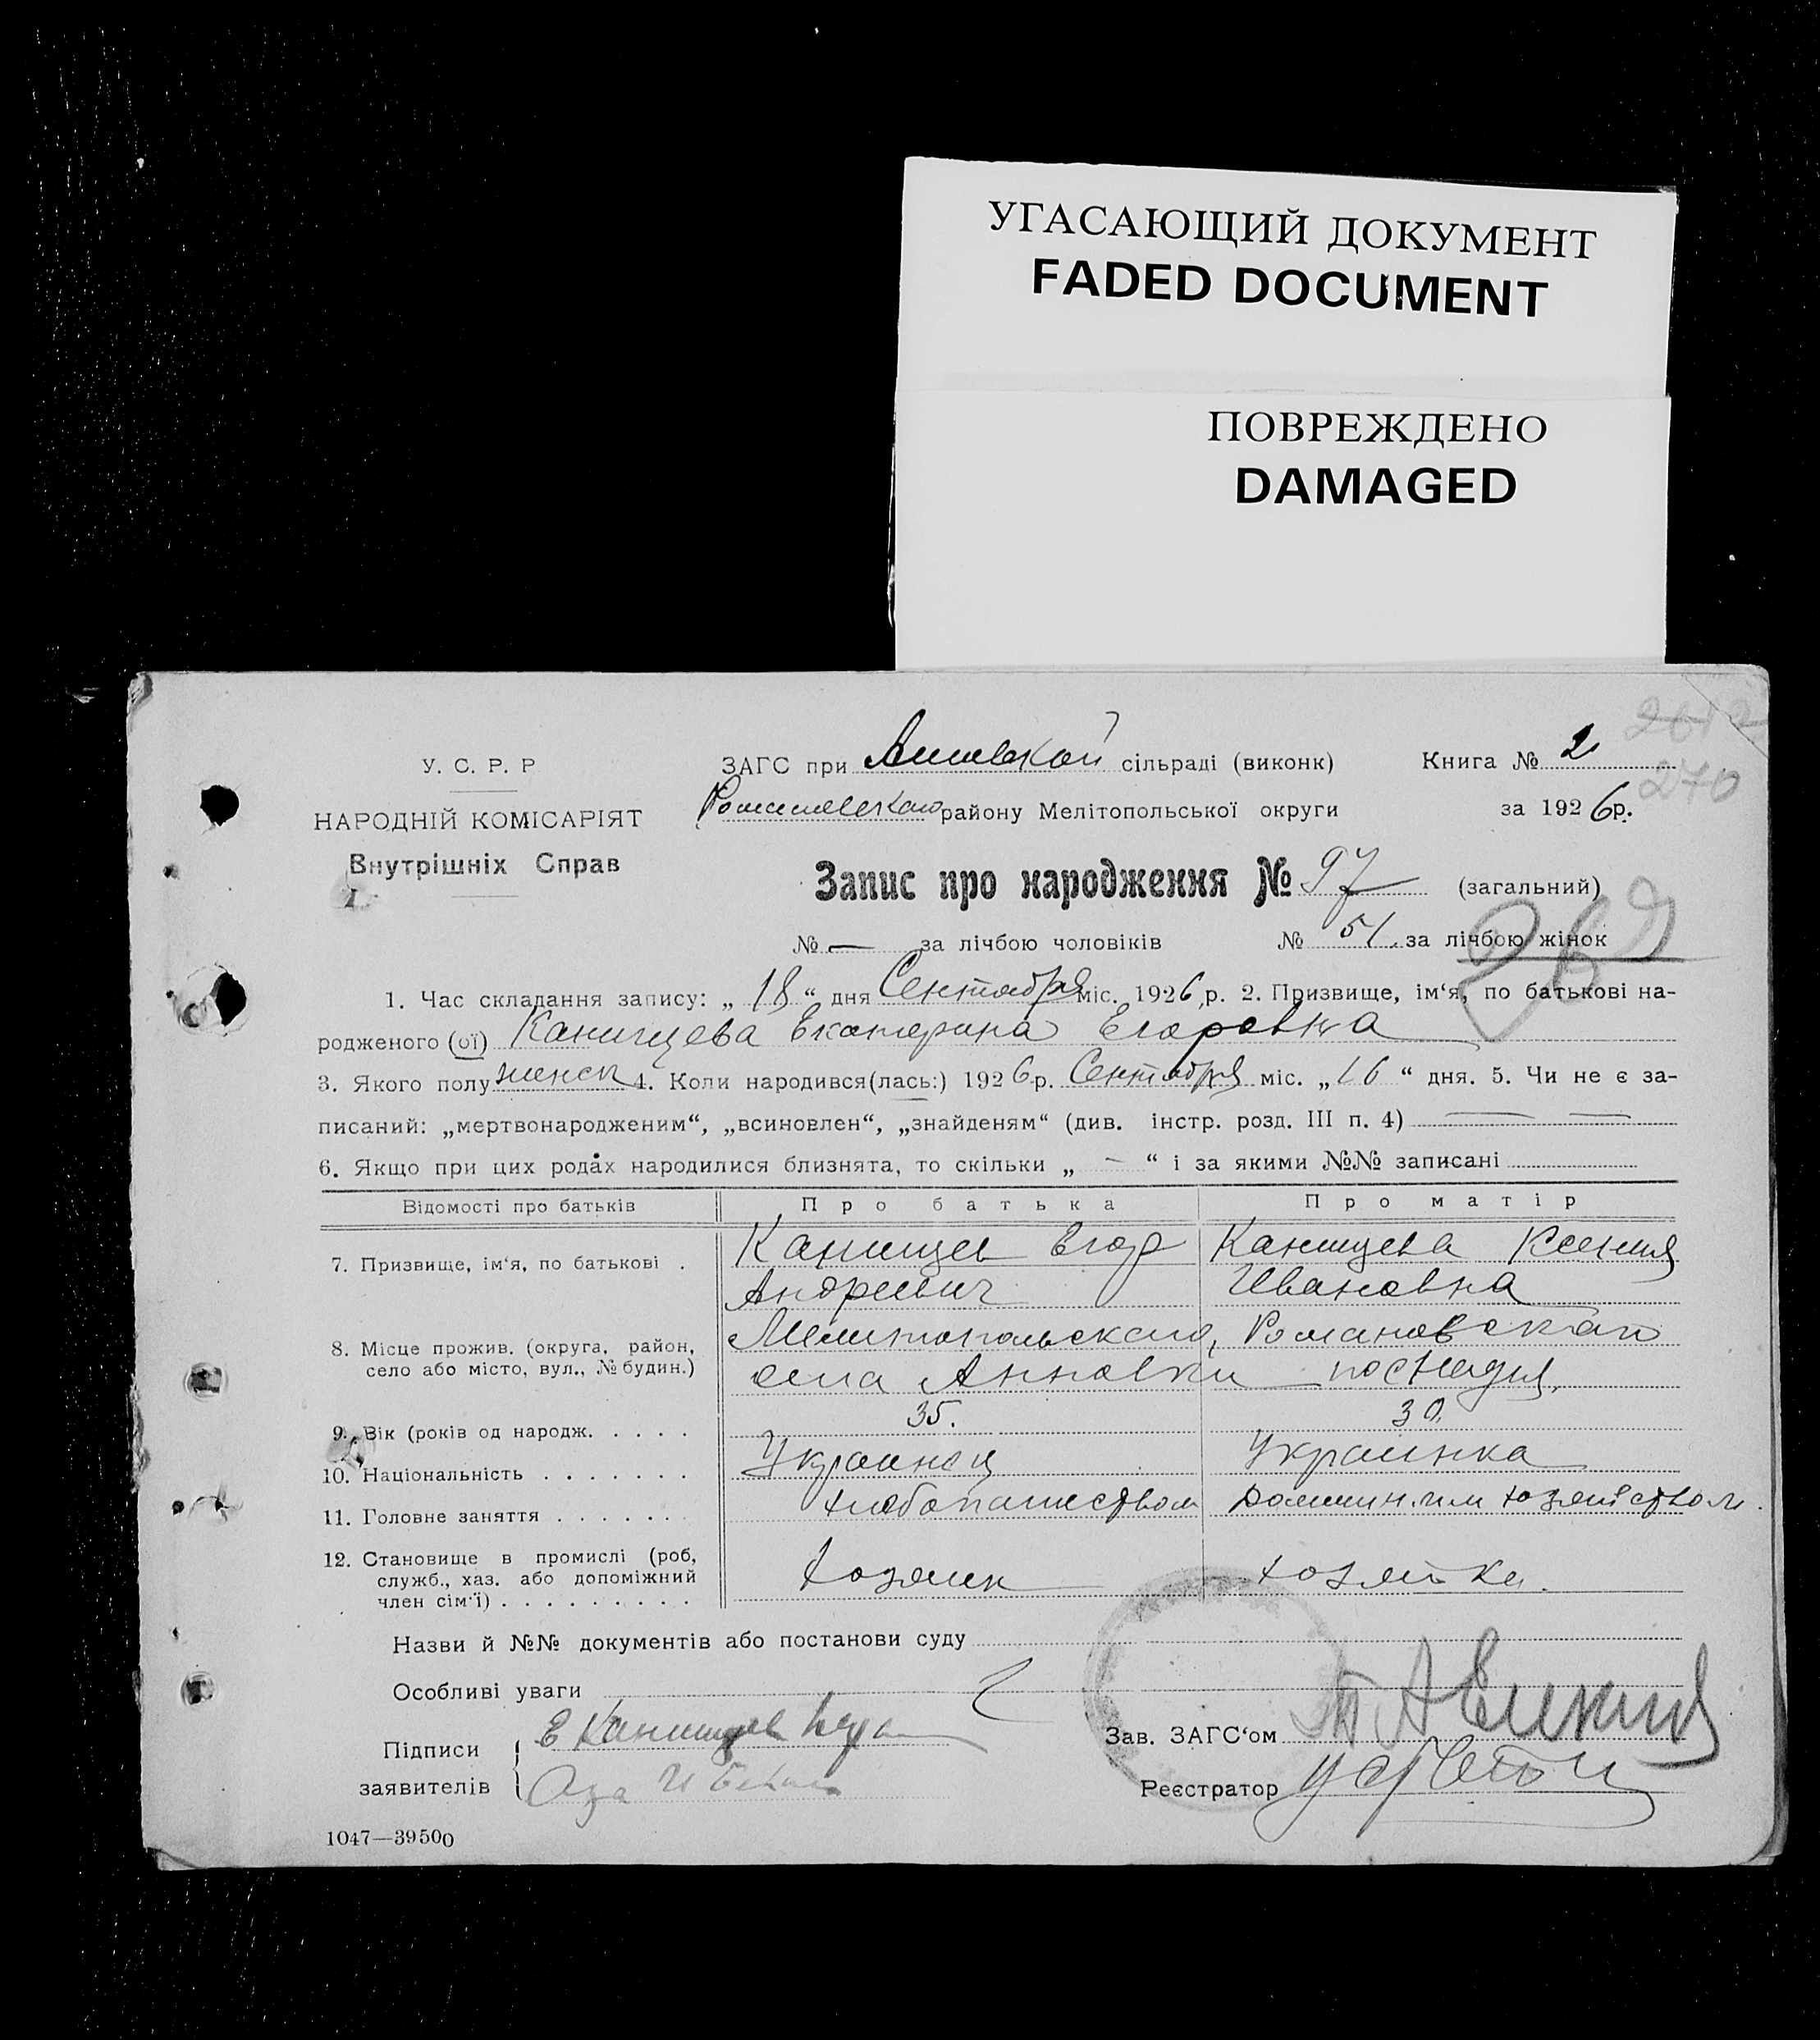 УГАСАЮЩИЙ ДОКУМЕНТ
FADED DOCUMENT
ПОВРЕЖДЕНО
DAMAGED
2612
270
У. С. Р. Р
НАРОДНІЙ КОМІСАРІЯТ
Внутрішніх Справ
ЗАГС при Анновской сільраді (виконк) Книга № 2
Романовского району Мелітопольської округи за 1926 р.
Запис про народження № 97 (загальний)
№ — за лічбою чоловіків № 51 за лічбою жінок
269
1. Час складання запису: „ 18 “ дня Сентября міс. 1926 р. 2. Призвище, ім‘я, по батькові на-
родженого (ої) Канищева Екатерина Егоровна
3. Якого полу женск 4. Коли народився(лась:) 1926 р. Сентября міс. „ 16 “ дня. 5. Чи не є за-
писаний: „мертвонародженим“, „всиновлен“, „знайденям“ (див. інстр. розд. III п. 4) — —
6. Якщо при цих родах народилися близнята, то скільки „ — “ і за якими №№ записані
Відомості про батьків Про батька Про матір
7. Призвище, ім‘я, по батькові . Канищев Егор Канищева Ксения
Андреевич Ивановна
8. Місце прожив. (округа, район, Мелитопольского, Романовского
село або місто, вул., № будин.) села Анновки
9. Вік (років од народж. . . . . 35. 30.
10. Національність . . . . . . . Украинец Украинка
11. Головне заняття . . . . . . . хлебопашеством домашним хозяйством.
12. Становище в промислі (роб, служб., хаз. або допоміжний член сім‘ї) . . . . . . . . . хозяин хозяйка.
Назви й №№ документів або постанови суду
Особливі уваги
Підписи заявителів Е Канищев
Зав. ЗАГС‘ом
Реєстратор
1047—39500